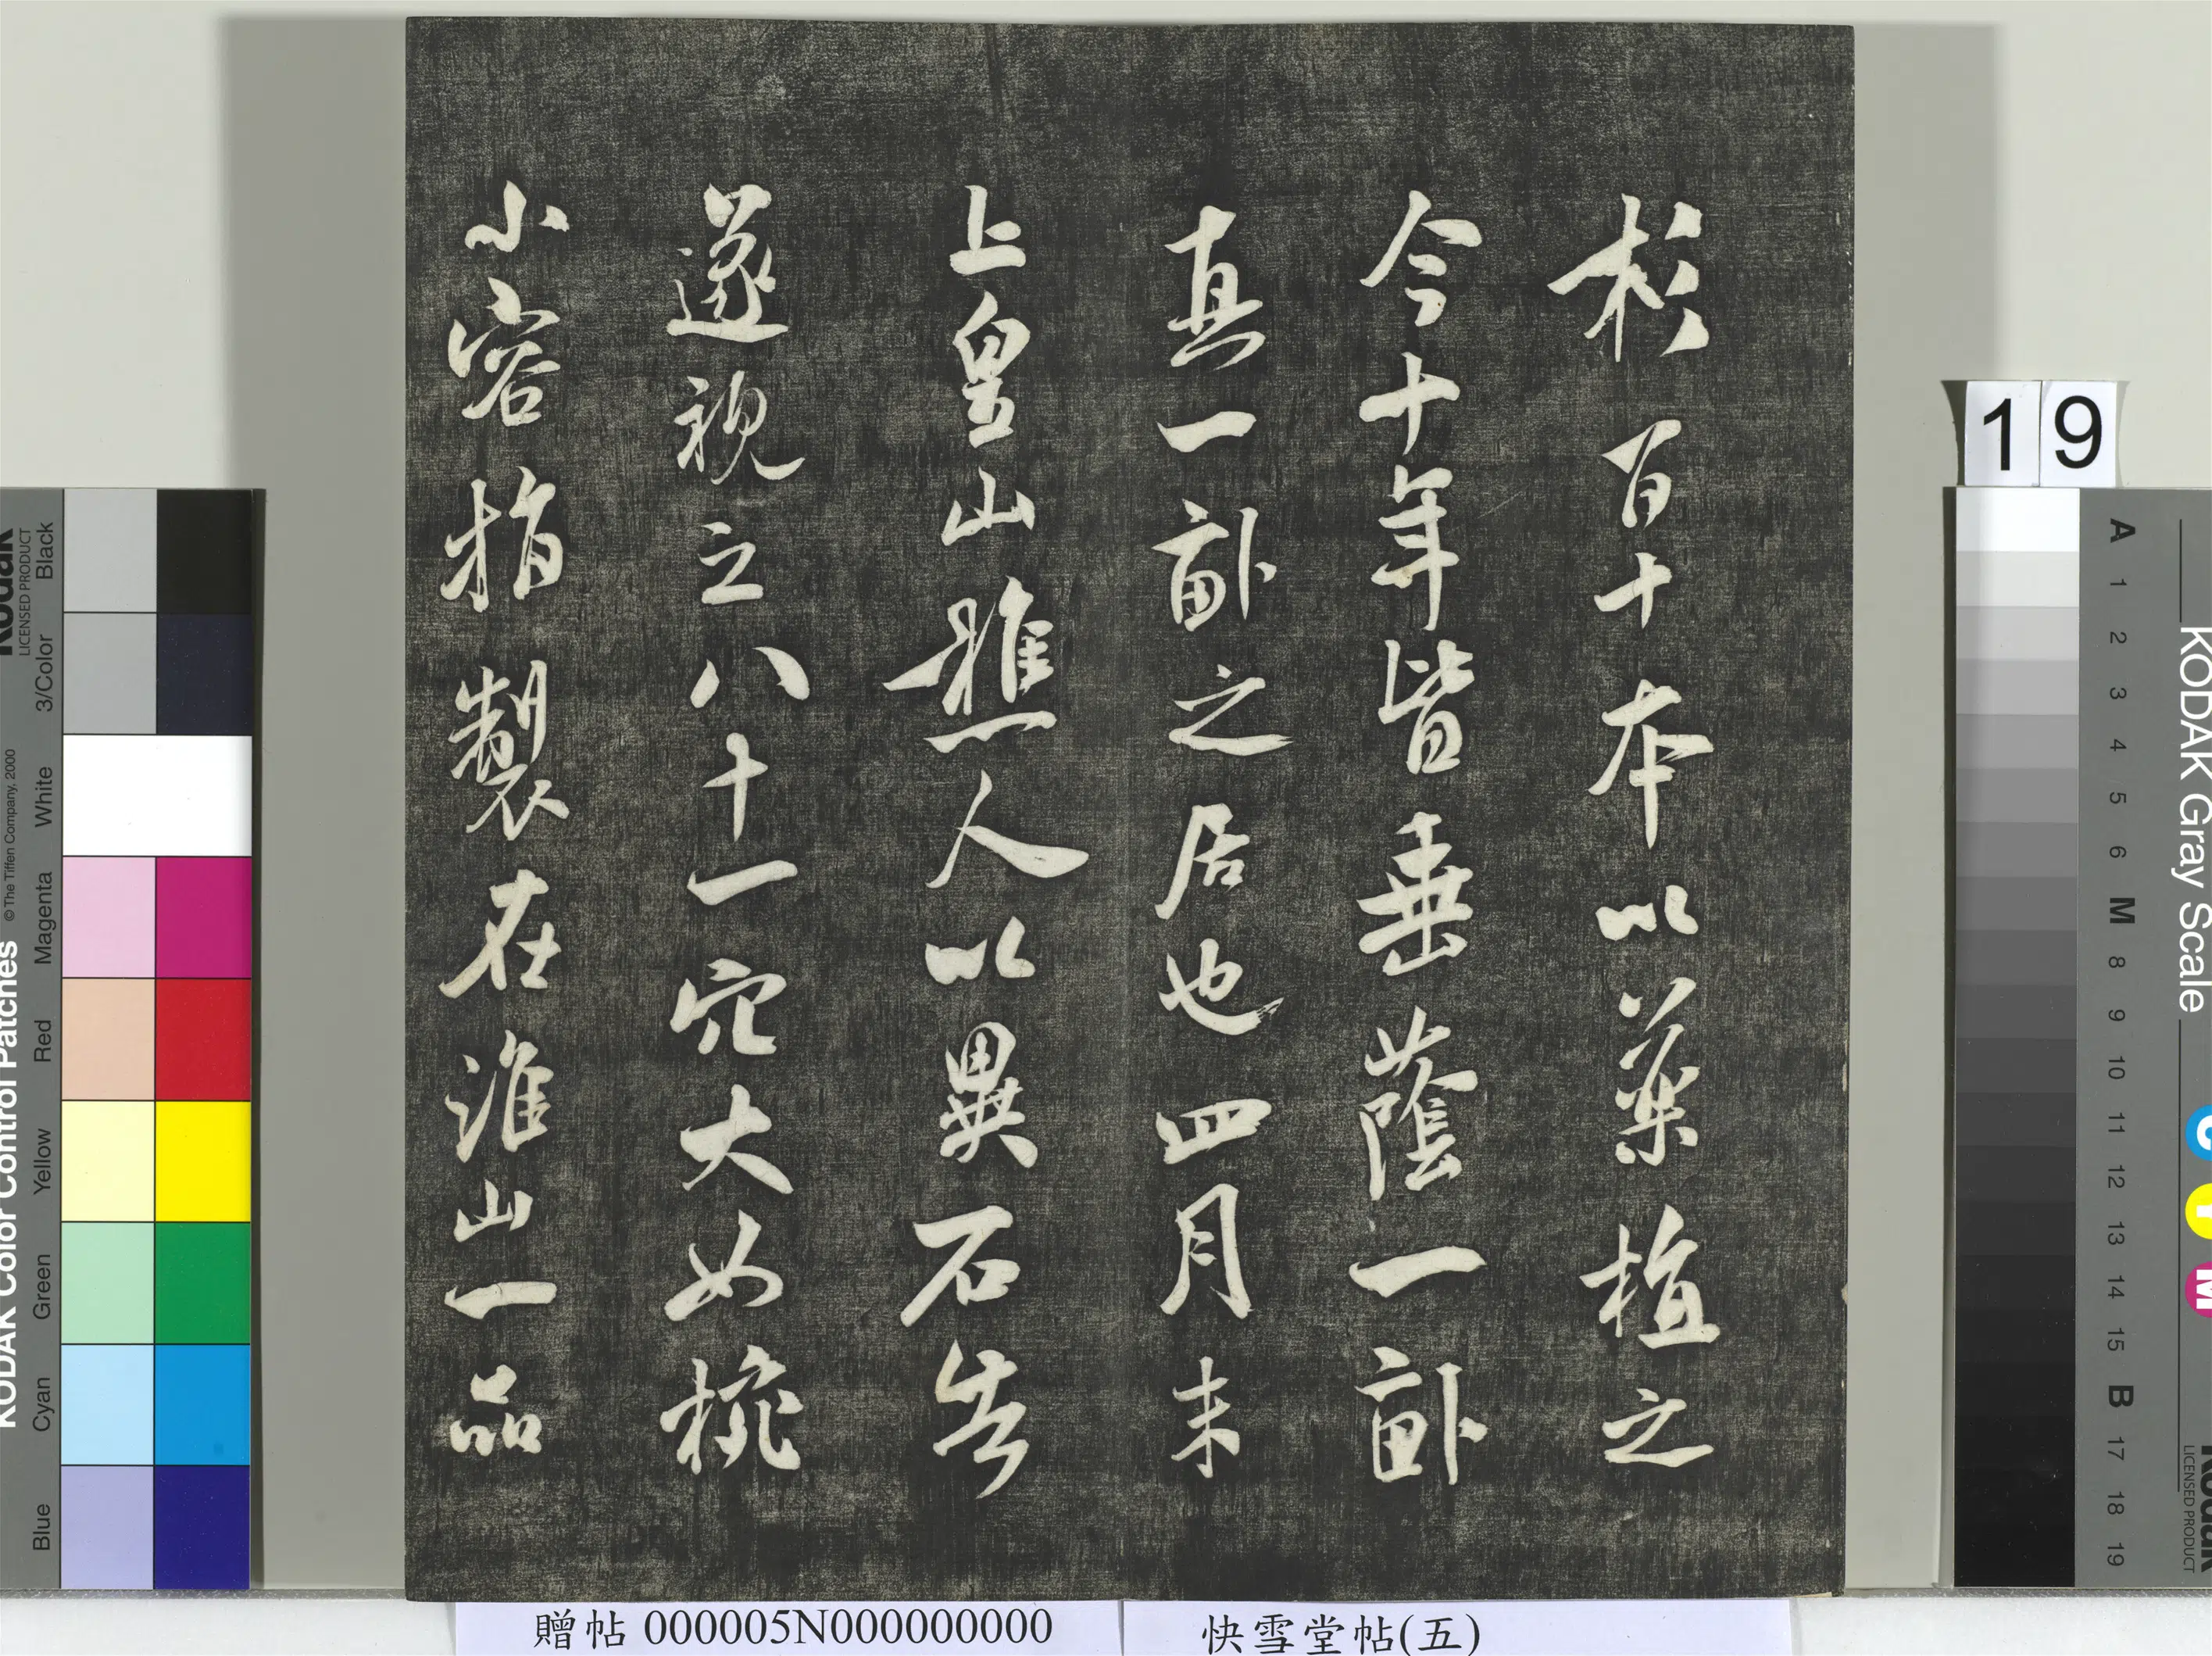 杉百十本以藥植之
今十年皆垂蔭一畝
真一畝之居也四月末
上皇山樵人以異石告
遂視之八十一穴大如椀
小容指製在淮山一品
贈帖 000005N000000000
快雪堂帖(五)
19
KODAK Color Control Patches
© The Tiffen Company, 2000
Kodak
LICENSED PRODUCT
Blue
Cyan
Green
Yellow
Red
Magenta
White
3/Color
Black
KODAK Gray Scale
Kodak
LICENSED PRODUCT
C
Y
M
A 1 2 3 4 5 6 M 8 9 10 11 12 13 14 15 B 17 18 19